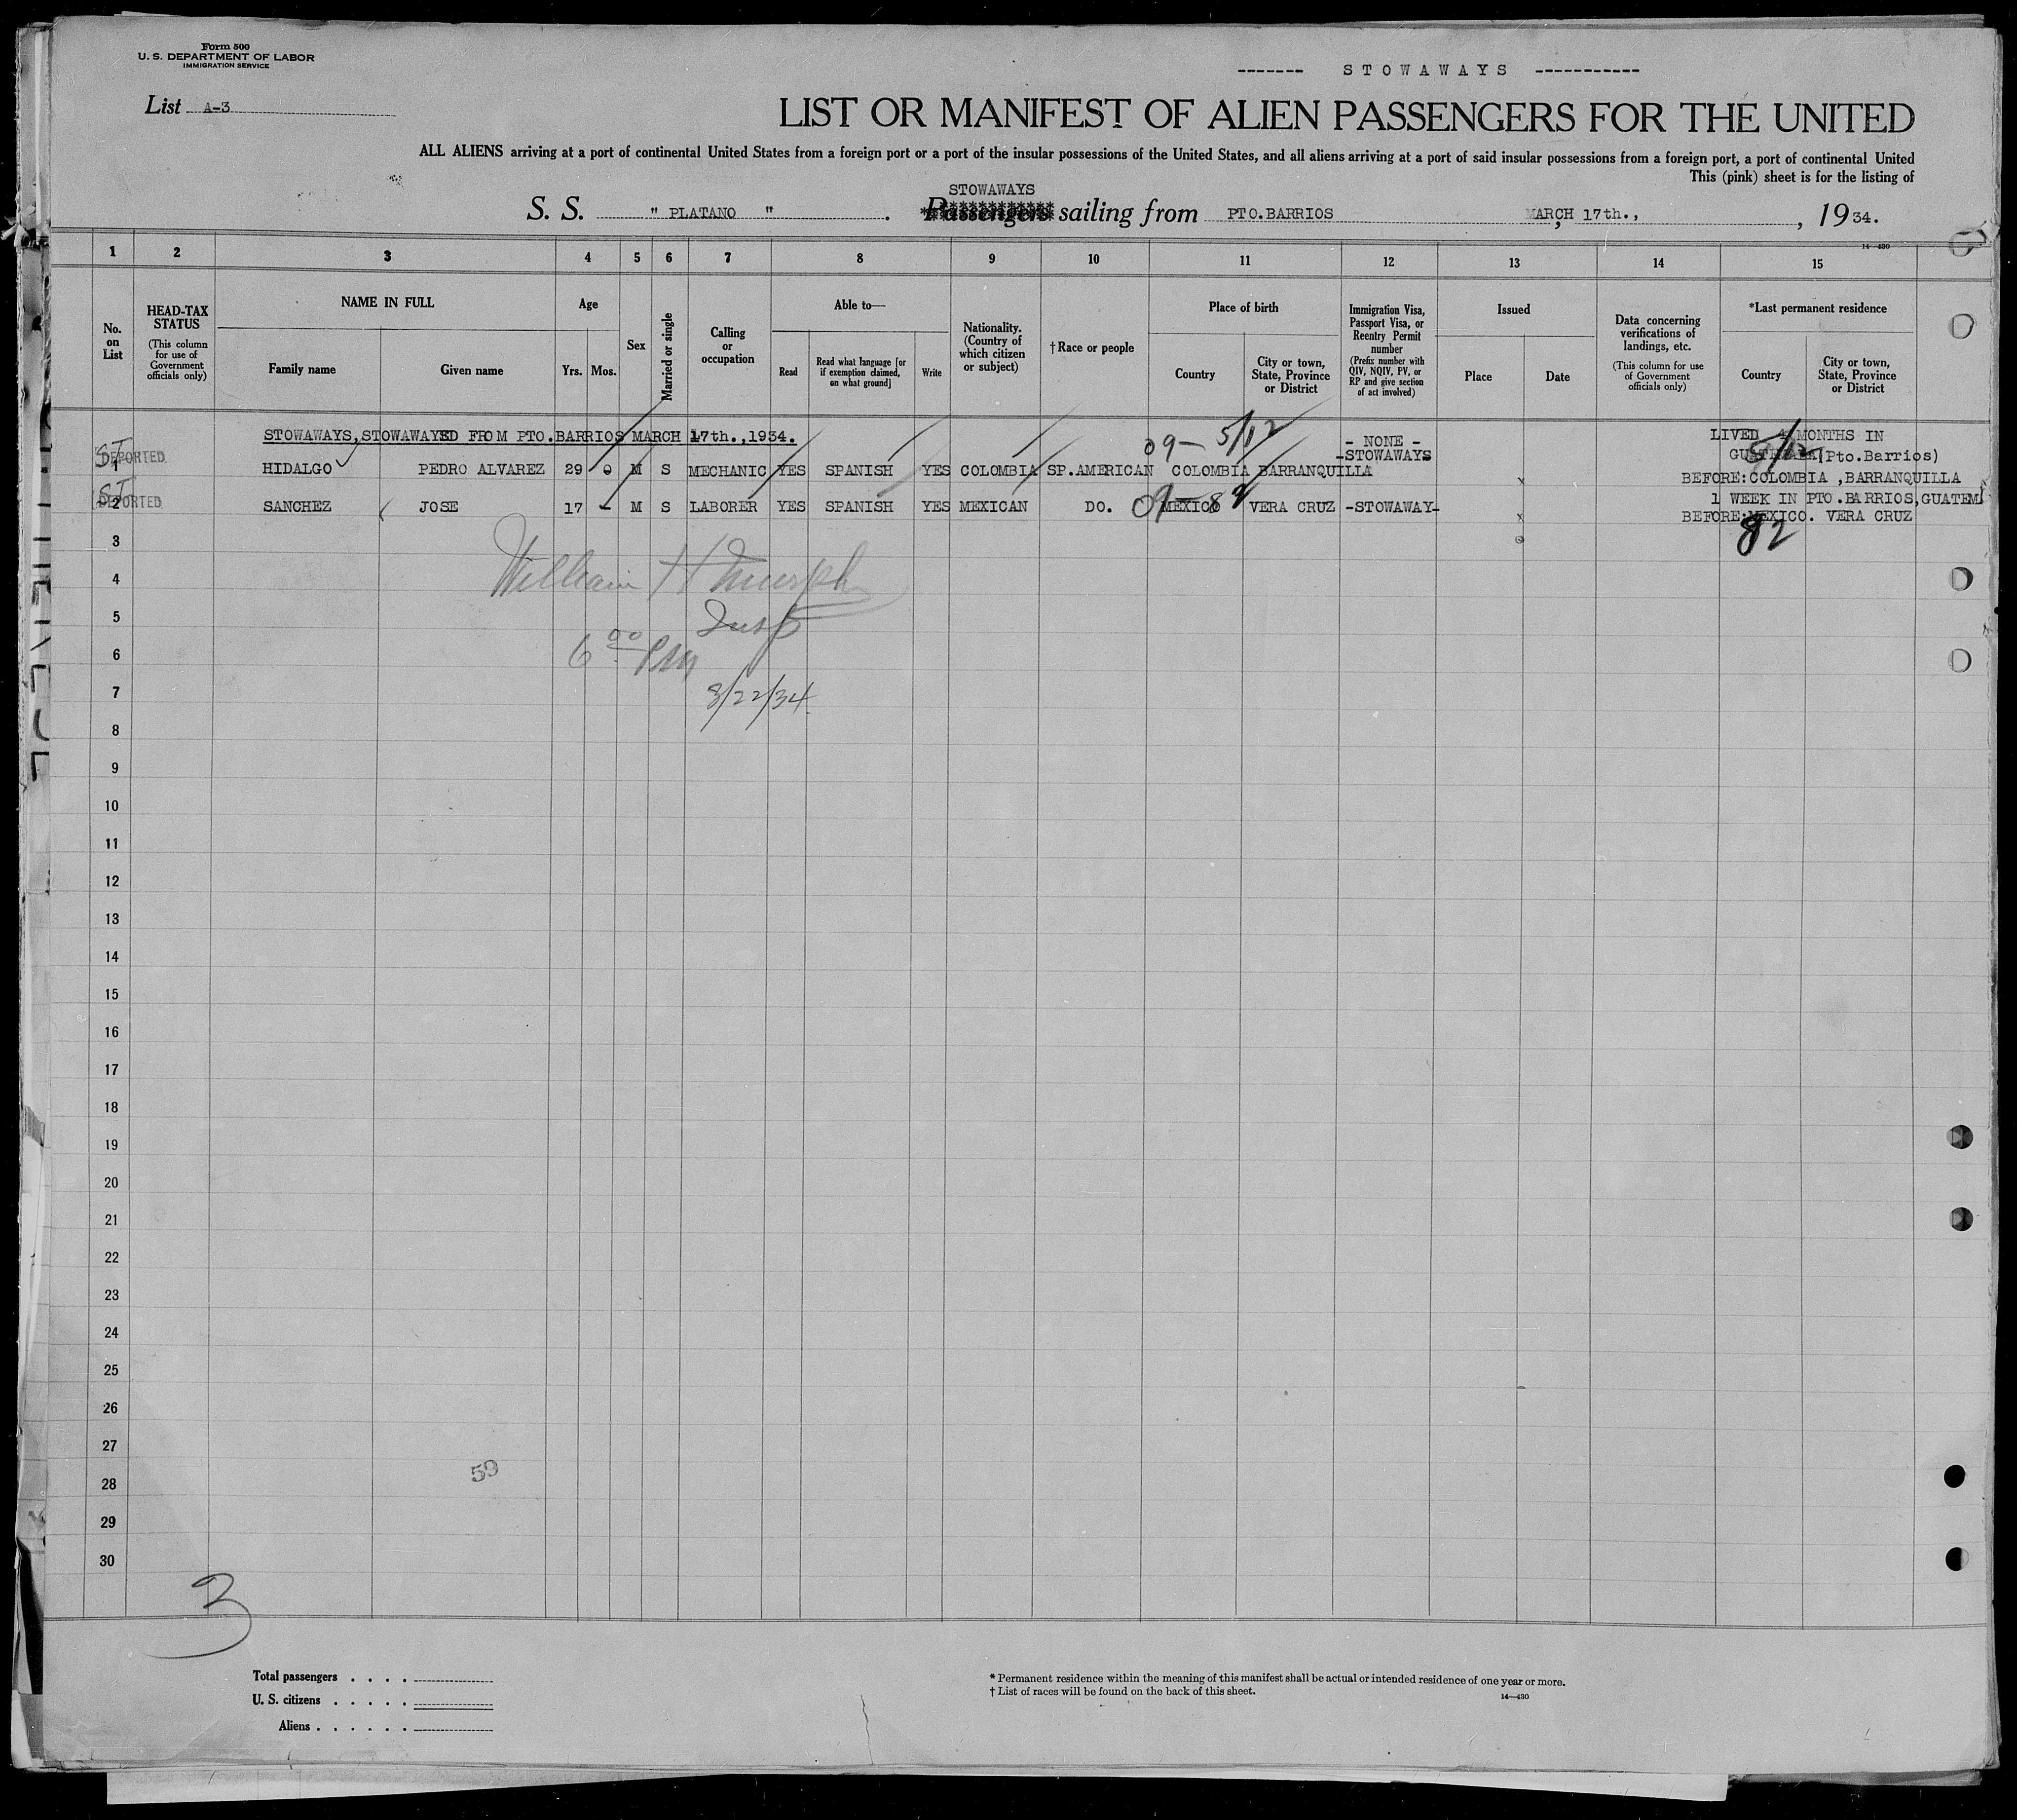 Form 500
U. S. DEPARTMENT OF LABOR
IMMIGRATION SERVICE
------- STOWAWAYS -----------
List A-3
LIST OR MANIFEST OF ALIEN PASSENGERS FOR THE UNITED
ALL ALIENS arriving at a port of continental United States from a foreign port or a port of the insular possessions of the United States, and all aliens arriving at a port of said insular possessions from a foreign port, a port of continental United
This (pink) sheet is for the listing of
STOWAWAYS
S. S. " PLATANO " . Passengers sailing from PTO.BARRIOS , MARCH 17th., , 1934.
14—430
1 2 3 4 5 6 7 8 9 10 11 12 13 14 15
No. on List
HEAD-TAX STATUS
(This column for use of Government officials only)
NAME IN FULL
Family name
Given name
Age
Yrs. Mos.
Sex
Married or single
Calling or occupation
Able to—
Read
Read what language [or if exemption claimed, on what ground]
Write
Nationality. (Country of which citizen or subject)
† Race or people
Place of birth
Country
City or town, State, Province or District
Immigration Visa, Passport Visa, or Reentry Permit number
(Prefix number with QIV, NQIV, PV, or RP and give section of act involved)
Issued
Place
Date
Data concerning verifications of landings, etc.
(This column for use of Government officials only)
*Last permanent residence
Country
City or town, State, Province or District
STOWAWAYS,STOWAWAYED FROM PTO.BARRIOS MARCH 17th.,1934.
09— 5/12
- NONE -
LIVED 4 MONTHS IN
ST DEPORTED
-STOWAWAYS
GUATEMALA(Pto.Barrios)
5/12
1 HIDALGO PEDRO ALVAREZ 29 0 M S MECHANIC YES SPANISH YES COLOMBIA SP.AMERICAN COLOMBIA BARRANQUILLA
x BEFORE:COLOMBIA ,BARRANQUILLA
ST DEPORTED
1 WEEK IN PTO.BARRIOS,GUATEM
2 SANCHEZ JOSE 17 - M S LABORER YES SPANISH YES MEXICAN DO. 09— 82 MEXICO VERA CRUZ -STOWAWAY-
x BEFORE:MEXICO. VERA CRUZ
82
3
4
William H Murphy
5
Insp
6
6 00 PM
7
8/22/34.
8
9
10
11
12
13
14
15
16
17
18
19
20
21
22
23
24
25
26
27
59
28
29
30
3
Total passengers . . . .
U. S. citizens . . . . .
Aliens . . . . . .
* Permanent residence within the meaning of this manifest shall be actual or intended residence of one year or more.
† List of races will be found on the back of this sheet.
14—430